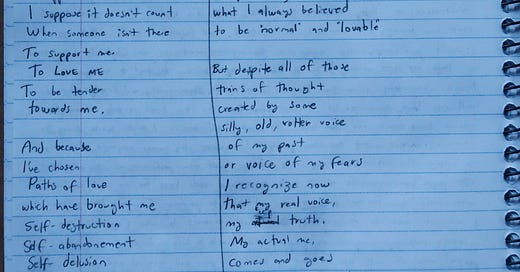 I suppose it doesn't count
When someone isn't there
To support me.
To LOVE ME
To be tender
towards me.
And because
I've chosen
Paths of love
which have brought me
Self-destruction
Self-abandonement
Self delusion
what I always believed
to be "normal" and "lovable"
But despite all of those
trans of thought
created by some
silly, old, rotten voice
of my past
or voice of my fears
I recognize now
that my real voice,
my truth.
My actual me,
comes and goes